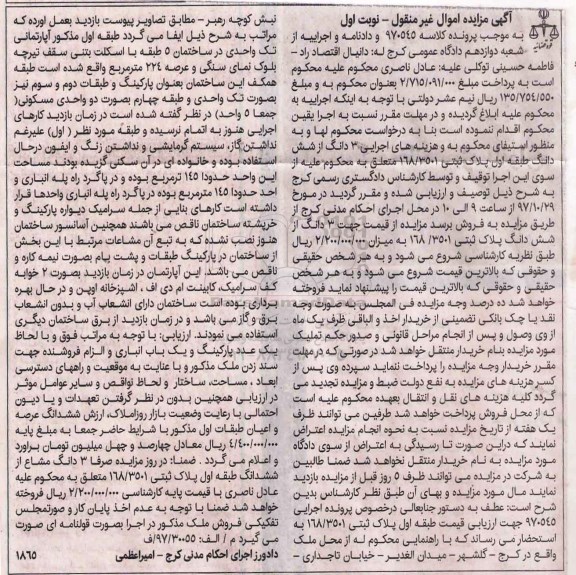 آگهی مزایده اموال غیر منقول - نوبت اول
به موجب پرونده کلاسه ۹۷۰۵۴۵ و دادنامه و اجراییه از
شعبه دوازدهم دادگاه عمومی کرج له: دانیال اقتصاد راد -
فاطمه حسینی توکلی علیه: عادل ناصری محکوم علیه محکوم
است به پرداخت مبلغ ۲/۷۱۵/۰۹۱/۰۰۰ بعنوان محکوم به و مبلغ
۱۳۵/۷۵۴/۵۵۰ ریال نیم عشر دولتی با توجه به اینکه اجراییه به
محکوم علیه ابلاغ گردیده و در مهلت مقرر نسبت به اجرا یقین
محکوم اقدام ننموده است بنا به درخواست محکوم لها و به
منظور استیفای محکوم به و هزینه های اجرایی ۳ دانگ از شش
دانگ طبقه اول پلاک ثبتی ۱۶۸/۳۵۰۱ متعلق به محکوم علیه از
سوی این اجرا توقیف و توسط کارشناس دادگستری رسمی کرج
به شرح ذیل توصیف و ارزیابی شده و مقرر گردید در مورخ
۹۷/۱۰/۲۹ از ساعت ۹ الی ۱۰ در محل اجرای احکام مدنی کرج از
طریق مزایده به فروش برسد مزایده از قیمت جهت ۳ دانگ از
شش دانگ پلاک ثبتی ۱۶۸/۳۵۰۱ به میزان ۲/۲۰۰/۰۰۰/۰۰۰ ریال
طبق نظریه کارشناسی شروع می شود و به هر شخص حقیقی
و حقوقی که بالاترین قیمت شروع می شود و به هر شخص
حقیقی و حقوقی که بالاترین قیمت را پیشنهاد نماید فروخته
خواهد شد ده درصد وجه مزایده فی المجلس به صورت وجه
نقد یا چک بانکی تضمینی از خریدار اخذ و الباقی ظرف یک ماه
از وی وصول و پس از انجام مراحل قانونی و صدور حکم تملیک
مورد مزایده بنام خریدار منتقل خواهد شد در صورتی که در مهلت
مقرر خریدار وجه مزایده را پرداخت ننماید سپرده وی پس از
کسر هزینه های مزایده به نفع دولت ضبط و مزایده تجدید می
گردد کلیه هزینه های نقل و انتقال بعهده محکوم علیه است
که از محل فروش پرداخت خواهد شد طرفین می توانند ظرف
یک هفته از تاریخ مزایده نسبت به نحوه انجام مزایده اعتراض
نمایند که دراین صورت تا رسیدگی به اعتراض از سوی دادگاه
مورد مزایده به نام خریدار منتقل نخواهد شد ضمنا طالبین
به شرکت در مزایده می توانند ظرف ۵ روز قبل از مزایده بازدید
نمایند مال مورد مزایده و بهای آن طبق نظر کارشناس بدین
شرح است: عطف به دستور جنابعالی درخصوص پرونده اجرایی
۹۷۰۵۴۵ جهت ارزیابی قیمت طبقه اول پلاک ثبتی ۱۶۸/۳۵۰۱ به
استحضار می رساند که با راهنمایی محکوم له از محل ملک
واقع در کرج - گلشهر - میدان الغدیر - خیابان تاجداری -
نبش کوچه رهبر - مطابق تصاویر پیوست بازدید بعمل اورده که
مراتب به شرح ذیل ایفا می گردد طبقه اول مذکور آپارتمانی
تک واحدی در ساختمان ۵ طبقه با اسکلت بتنی سقف تیرچه
بلوک نمای سنگی و عرصه ۲۲۴ مترمربع واقع شده است طبقه
همکف این ساختمان بعنوان پارکینگ و طبقات دوم و سوم نیز
بصورت تک واحدی و طبقه چهارم بصورت دو واحدی مسکونی(
جمعا ۵ واحد) در نظر گفته شده است در زمان بازدید کارهای
اجرایی هنوز به اتمام نرسیده و طبقه مورد نظر ( اول) علیرغم
نداشتن گاز، سیستم گرمایشی و نداشتن زنگ و ایفون درحال
استفاده بوده و خانواده ای در آن سکنی گزیده بودند مساحت
این واحد حدودا ۱۴۵ ترمربع بوده و در پاگرد راه پله انباری و
احد حدودا ۱۴۵ مترمربع بوده و در پاگرد راه پله انباری واحدها قرار
داشته است کارهای بنایی از جمله سرامیک دیواره پارکینگ و
خرپشته ساختمان ناقص می باشند همچنین آسانسور ساختمان
هنوز نصب نشده که به تبع آن مشاعات مرتبط با این بخش
از ساختمان در پارکینگ طبقات و پشت پیام بصورت نیمه کاره و
ناقص می باشد. این آپارتمان در زمان بازدید بصورت ۲ خوابه
کف سرامیک، کابینت ام دی اف ، اشپزخانه اوپن و در حال بهره
برداری بوده است ساختمان دارای انشعاب آب و بدون انشعاب
برق و گاز می باشد و در زمان بازدید از برق ساختمان دیگری
استفاده می نمودند. ارزیابی: با توجه به مراتب فوق و با لحاظ
یک عدد پارکینگ و یک باب انباری و الزام فروشنده جهت
سند زدن ملک مذکور و با عنایت به موقعیت و راههای دسترسی
ابعاد ، مساحت، ساختار و لحاظ نواقص و سایر عوامل موثر
در ارزیابی همچنین بدون در نظر گرفتن تعهدات و یا دیون
احتمالی با رعایت وضعیت بازار روزاملاک، ارزش ششدانگ عرصه
و اعیان طبقات اول مذکور با شرایط حاضر جمعا به مبلغ پایه
۴/۴۰۰/۰۰۰/۰۰۰ ریال معادل چهارصد و چهل میلیون تومان براورد
و اعلام می گردد . ضمنا: در روز مزایده صرفا ۳ دانگ مشاع از
ششدانگ طبقه اول پلاک ثبتی ۱۶۸/۳۵۰۱ متعلق به محکوم علیه
عادل ناصری با قیمت پایه کارشناسی ۲/۲۰۰/۰۰۰/۰۰۰ ریال فروخته
خواهد شد ضمنا با توجه به عدم اخذ پایان کار و صورتمجلس
تفکیکی فروش ملک مذکور در اجرا بصورت قولنامه ای صورت
می گیرد م / الف: ۹۷/۳۰۰۵۵/ف
دادورز اجرای احکام مدنی کرج - امیراعظمی ۱۸۶۵